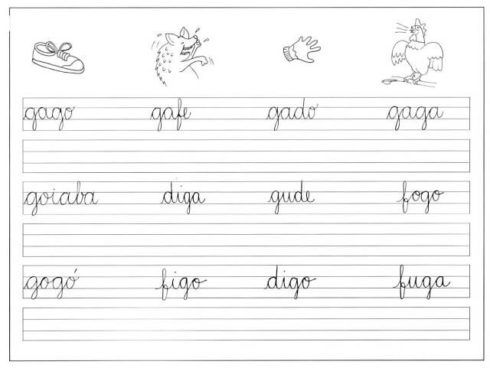 gago gafe gado gaga
goiaba diga gude fogo
gogó figo digo fuga